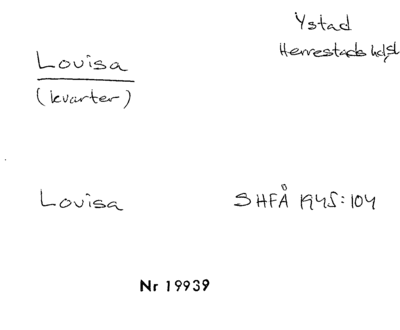 Ystad
Herrestads hd,sk
Louisa
(kvarter)
Louisa SHFÅ 1945:104
Nr 19939